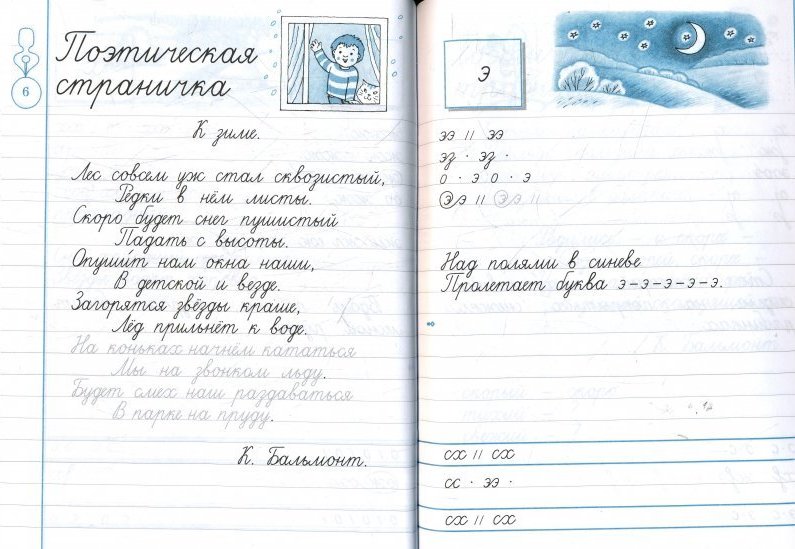 Поэтическая
страничка
6
К зиме.
Лес совсем уж стал сквозистый,
Редки в нём листы.
Скоро будет снег пушистый
Падать с высоты.
Опуши́т нам окна наши,
В детской и везде.
Загорятся звёзды краше,
Лёд прильнёт к воде.
На коньках начнём кататься
Мы на звонком льду.
Будет смех наш раздаваться
В парке на пруду.
К. Бальмонт.
э
ээ // ээ
эз · эз ·
о · э о · э
ээ // ээ //
Над полями в синеве
Пролетает буква э-э-э-э-э.
сх // сх
сс · ээ ·
сх // сх